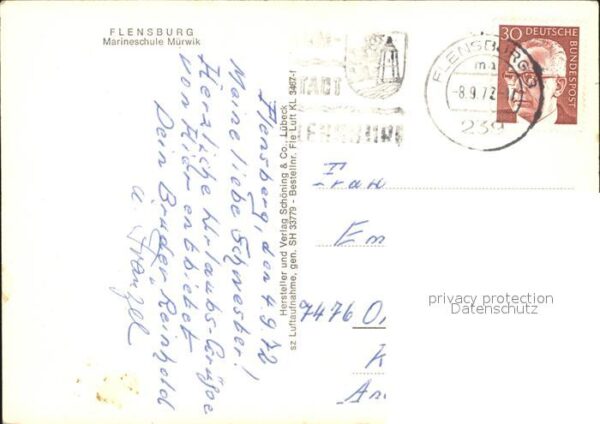 FLENSBURG
Marineschule Mürwik
Flensberg, den 4.9.72
Meine liebe Schwester!
Herzliche Urlaubs-Grüße
von Hier entbietet
Dein Bruder Reinhold
u. Franzel
Hersteller und Verlag Schöning & Co., Lübeck
sz Luftaufnahme, gen. SH 33779 - Bestellnr. Fle Luft KL 3467-1
STADT
FLENSBURG
FLENSBURG
ma
-8.9.72
239
30
DEUTSCHE BUNDESPOST
Frau
Em
7476 O
K
An
privacy protection
Datenschutz